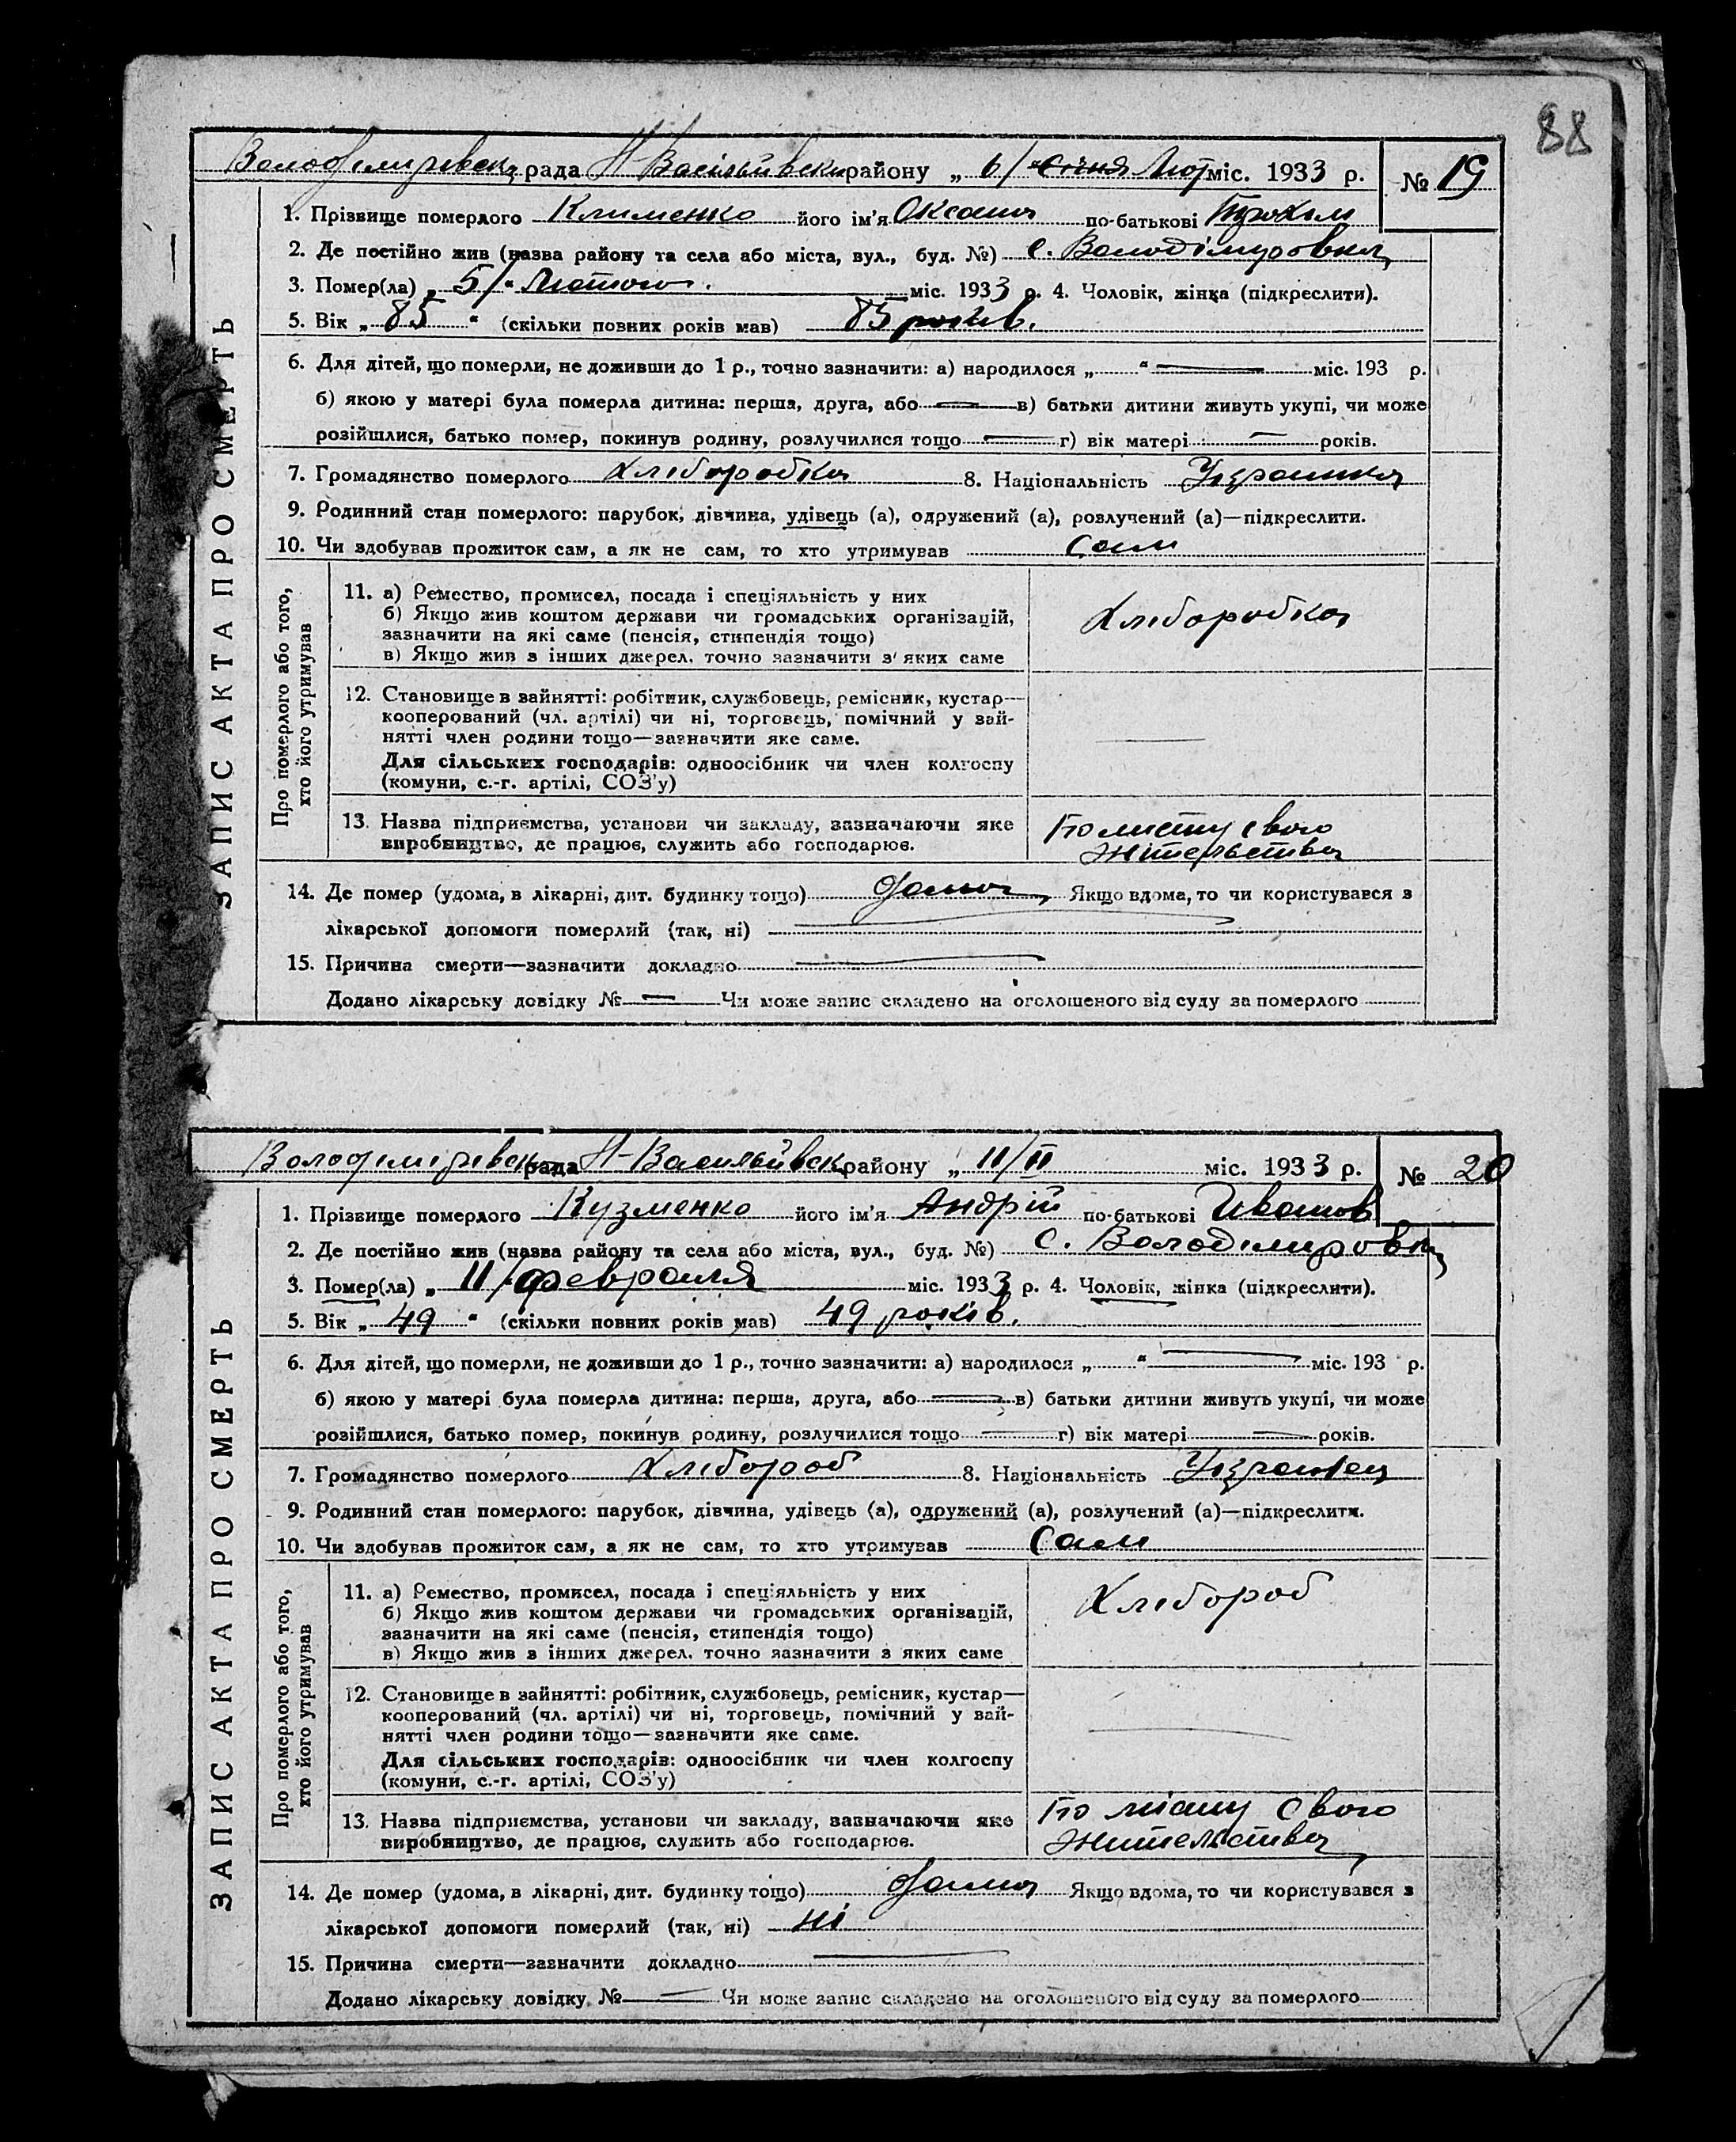 88
Володимировск рада Н-Васильивськ району „ 6/ січня Лют міс. 1933 р. № 19
1. Прізвище померлого Клименко його ім'я Оксана по-батькові Трохим
2. Де постійно жив (назва району та села або міста, вул., буд. №) с. Володімировка
3. Помер(ла) „ 5/" Лютого. міс. 1933 р. 4. Чоловік, жінка (підкреслити).
5. Вік „ 85 " (скільки повних років мав) 85 років.
6. Для дітей, що померли, не доживши до 1 р., точно зазначити: а) народилося „ " — міс. 193 р.
б) якою у матері була померла дитина: перша, друга, або — в) батьки дитини живуть укупі, чи може
розійшлися, батько помер, покинув родину, розлучилися тощо — г) вік матері — років.
7. Громадянство померлого хліборобка 8. Національність Українка
9. Родинний стан померлого: парубок, дівчина, удівець (а), одружений (а), розлучений (а)—підкреслити.
10. Чи здобував прожиток сам, а як не сам, то хто утримував сам
ЗАПИС АКТА ПРО СМЕРТЬ
Про померлого або того,
хто його утримував
11. а) Ремество, промисел, посада і спеціяльність у них
б) Якщо жив коштом держави чи громадських організацій,
зазначити на які саме (пенсія, стипендія тощо)
в) Якщо жив з інших джерел, точно зазначити з яких саме
хліборобка
12. Становище в зайнятті: робітник, службовець, ремісник, кустар—
кооперований (чл. артілі) чи ні, торговець, помічний у зай-
нятті член родини тощо—зазначити яке саме.
Для сільських господарів: одноосібник чи член колгоспу
(комуни, с.-г. артілі, СОЗ'у)
—
13. Назва підприємства, установи чи закладу, зазначаючи яке
виробництво, де працює, служить або господарює.
По місту свого
жительства
14. Де помер (удома, в лікарні, дит. будинку тощо) дома Якщо вдома, то чи користувався з
лікарської допомоги померлий (так, ні) —
15. Причина смерти—зазначити докладно —
Додано лікарську довідку № — Чи може запис складено на оголошеного від суду за померлого
Володимировск рада Н-Васильивск району „ 11/II міс. 1933 р. № 20
1. Прізвище померлого Кузменко його ім'я Андрій по-батькові Иванов
2. Де постійно жив (назва району та села або міста, вул., буд. №) с. Володимировка
3. Помер(ла) „ 11/ февраля міс. 1933 р. 4. Чоловік, жінка (підкреслити).
5. Вік „ 49 " (скільки повних років мав) 49 років.
6. Для дітей, що померли, не доживши до 1 р., точно зазначити: а) народилося „ " — міс. 193 р.
б) якою у матері була померла дитина: перша, друга, або — в) батьки дитини живуть укупі, чи може
розійшлися, батько помер, покинув родину, розлучилися тощо — г) вік матері — років.
7. Громадянство померлого хлібороб 8. Національність Українец
9. Родинний стан померлого: парубок, дівчина, удівець (а), одружений (а), розлучений (а)—підкреслити.
10. Чи здобував прожиток сам, а як не сам, то хто утримував сам
ЗАПИС АКТА ПРО СМЕРТЬ
Про померлого або того,
хто його утримував
11. а) Ремество, промисел, посада і спеціяльність у них
б) Якщо жив коштом держави чи громадських організацій,
зазначити на які саме (пенсія, стипендія тощо)
в) Якщо жив з інших джерел, точно зазначити з яких саме
хлібороб
12. Становище в зайнятті: робітник, службовець, ремісник, кустар—
кооперований (чл. артілі) чи ні, торговець, помічний у зай-
нятті член родини тощо—зазначити яке саме.
Для сільських господарів: одноосібник чи член колгоспу
(комуни, с.-г. артілі, СОЗ'у)
—
13. Назва підприємства, установи чи закладу, зазначаючи яке
виробництво, де працює, служить або господарює.
По місту свого
жительства
14. Де помер (удома, в лікарні, дит. будинку тощо) дома Якщо вдома, то чи користувався з
лікарської допомоги померлий (так, ні) ні
15. Причина смерти—зазначити докладно —
Додано лікарську довідку № — Чи може запис складено на оголошеного від суду за померлого